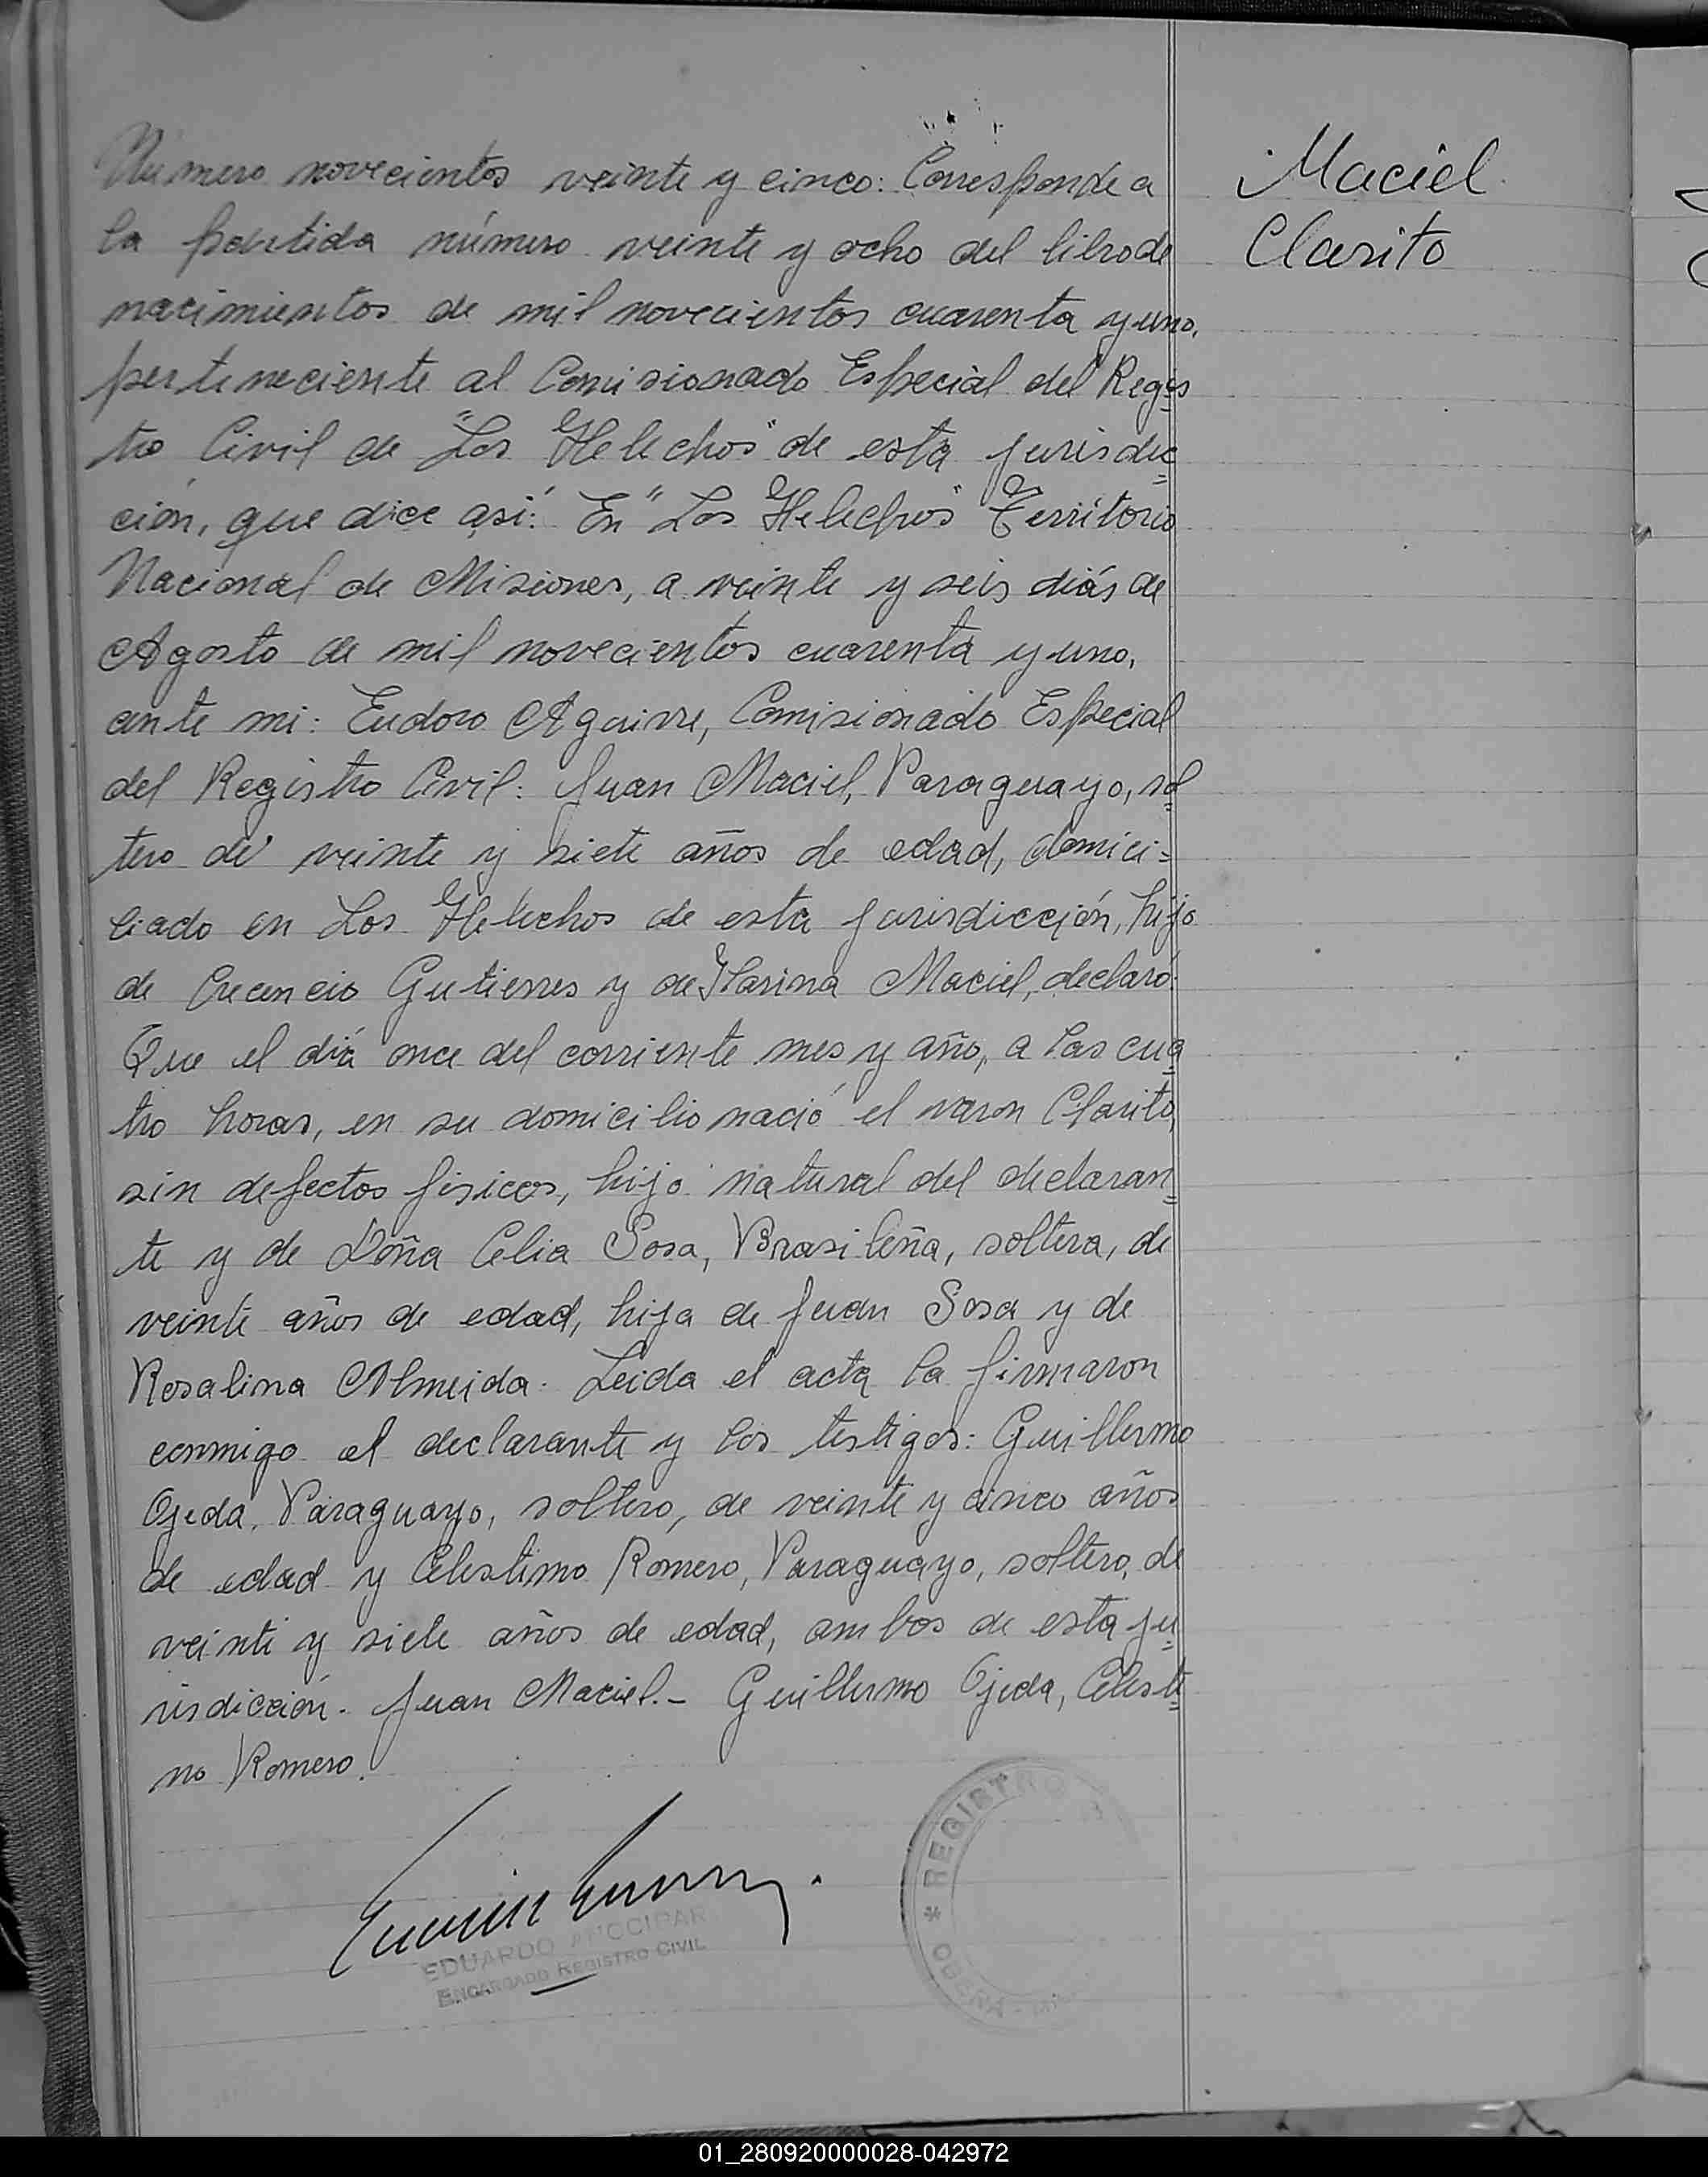 Número novecientos veinte y cinco: Corresponde a
la partida número veinte y ocho del libro de
nacimientos de mil novecientos cuarenta y uno,
perteneciente al Comisionado Especial del Regis
tro Civil de "Los Helechos" de esta jurisdic
ción, que dice así: En "Los Helechos" Territorio
Nacional de Misiones, a veinte y seis días de
Agosto de mil novecientos cuarenta y uno,
ante mi: Eudoro Aguirre, Comisionado Especial
del Registro Civil: Juan Maciel, Paraguayo, sol
tero de veinte y siete años de edad, domici=
liado en Los Helechos de esta jurisdicción, hijo
de Crecencio Gutierres y de Maciel, declaró:
Que el día once del corriente mes y año, a las cua
tro horas, en su domicilio nació el varon Clarito,
sin defectos fisicos, hijo natural del declaran
te y de Doña Celia Sosa, Brasileña, soltera, de
veinte años de edad, hija de Juan Sosa y de
Rosalina Almeida. Leida el acta la firmaron
conmigo el declarante y los testigos: Guillermo
Ojeda, Paraguayo, soltero, de veinte y cinco años
de edad y Celestimo Romero, Paraguayo, soltero, de
veinte y siete años de edad, ambos de esta ju
risdicción. Juan Maciel.- Guillermo Ojeda, Celesti
no Romero.
Maciel
Clarito
EDUARDO
ENCARGADO REGISTRO CIVIL
* REGISTRO
OBERÁ
01_280920000028-042972